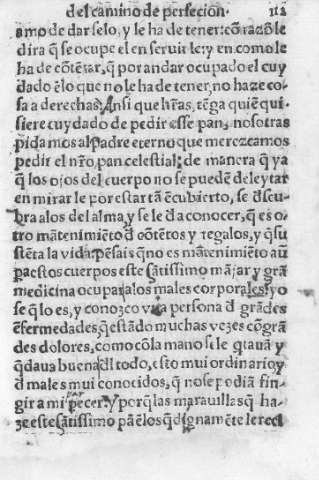 del camino de perfecion. 112
amo de dar selo, y le ha de tener: cõ razõ le
dira q̃ se ocupe el en seruir le: y en como le
ha de cõtẽtar, q̃ por andar ocupado el cuy
dado ẽ lo que no le ha de tener, no haze co-
sa a derechas. Ansi que hr̃as, tẽga quiẽ qui
siere cuydado de pedir esse pan, nosotras
pidamos al Padre eterno que merezcamos
pedir el nr̃o, pan celestial: de manera q̃ ya
q̃ los ojos del cuerpo no se puedẽ deleytar
en mirar le por estar tã ẽcubierto, se d̃scu-
bra a los del alma, y se le d̃ a conocer, q̃ es o-
tro mãtenimiẽto d̃ cõtẽtos y regalos, y q̃ su
stẽta la vida. Pensais q̃ no es mãtenimiẽto aũ
pa estos cuerpos este sãtissimo mãjar, y grã
medicina a los males corporales? yo
se q̃ lo es, y conozco vna persona d̃ grãdes
ẽfermedades, q̃ estãdo muchas vezes cõ grã
des dolores, como cõ la mano se le q̃tauã, y
q̃daua buena d̃l todo, esto mui ordinario, y
d̃ males mui conocidos, q̃ no se podiã fin-
gir a mi parecer. Y porq̃ las marauillas q̃ ha-
ze este sãtissimo pã ẽ los q̃ dignamẽte le reci